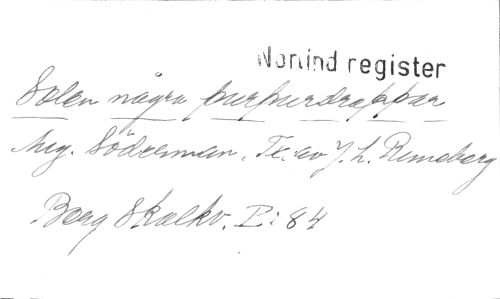 Norlind register
Solen några purpurdroppar
Aug. Söderman. Tx. av J. L. Runeberg
Berg Skalkv. I: 84